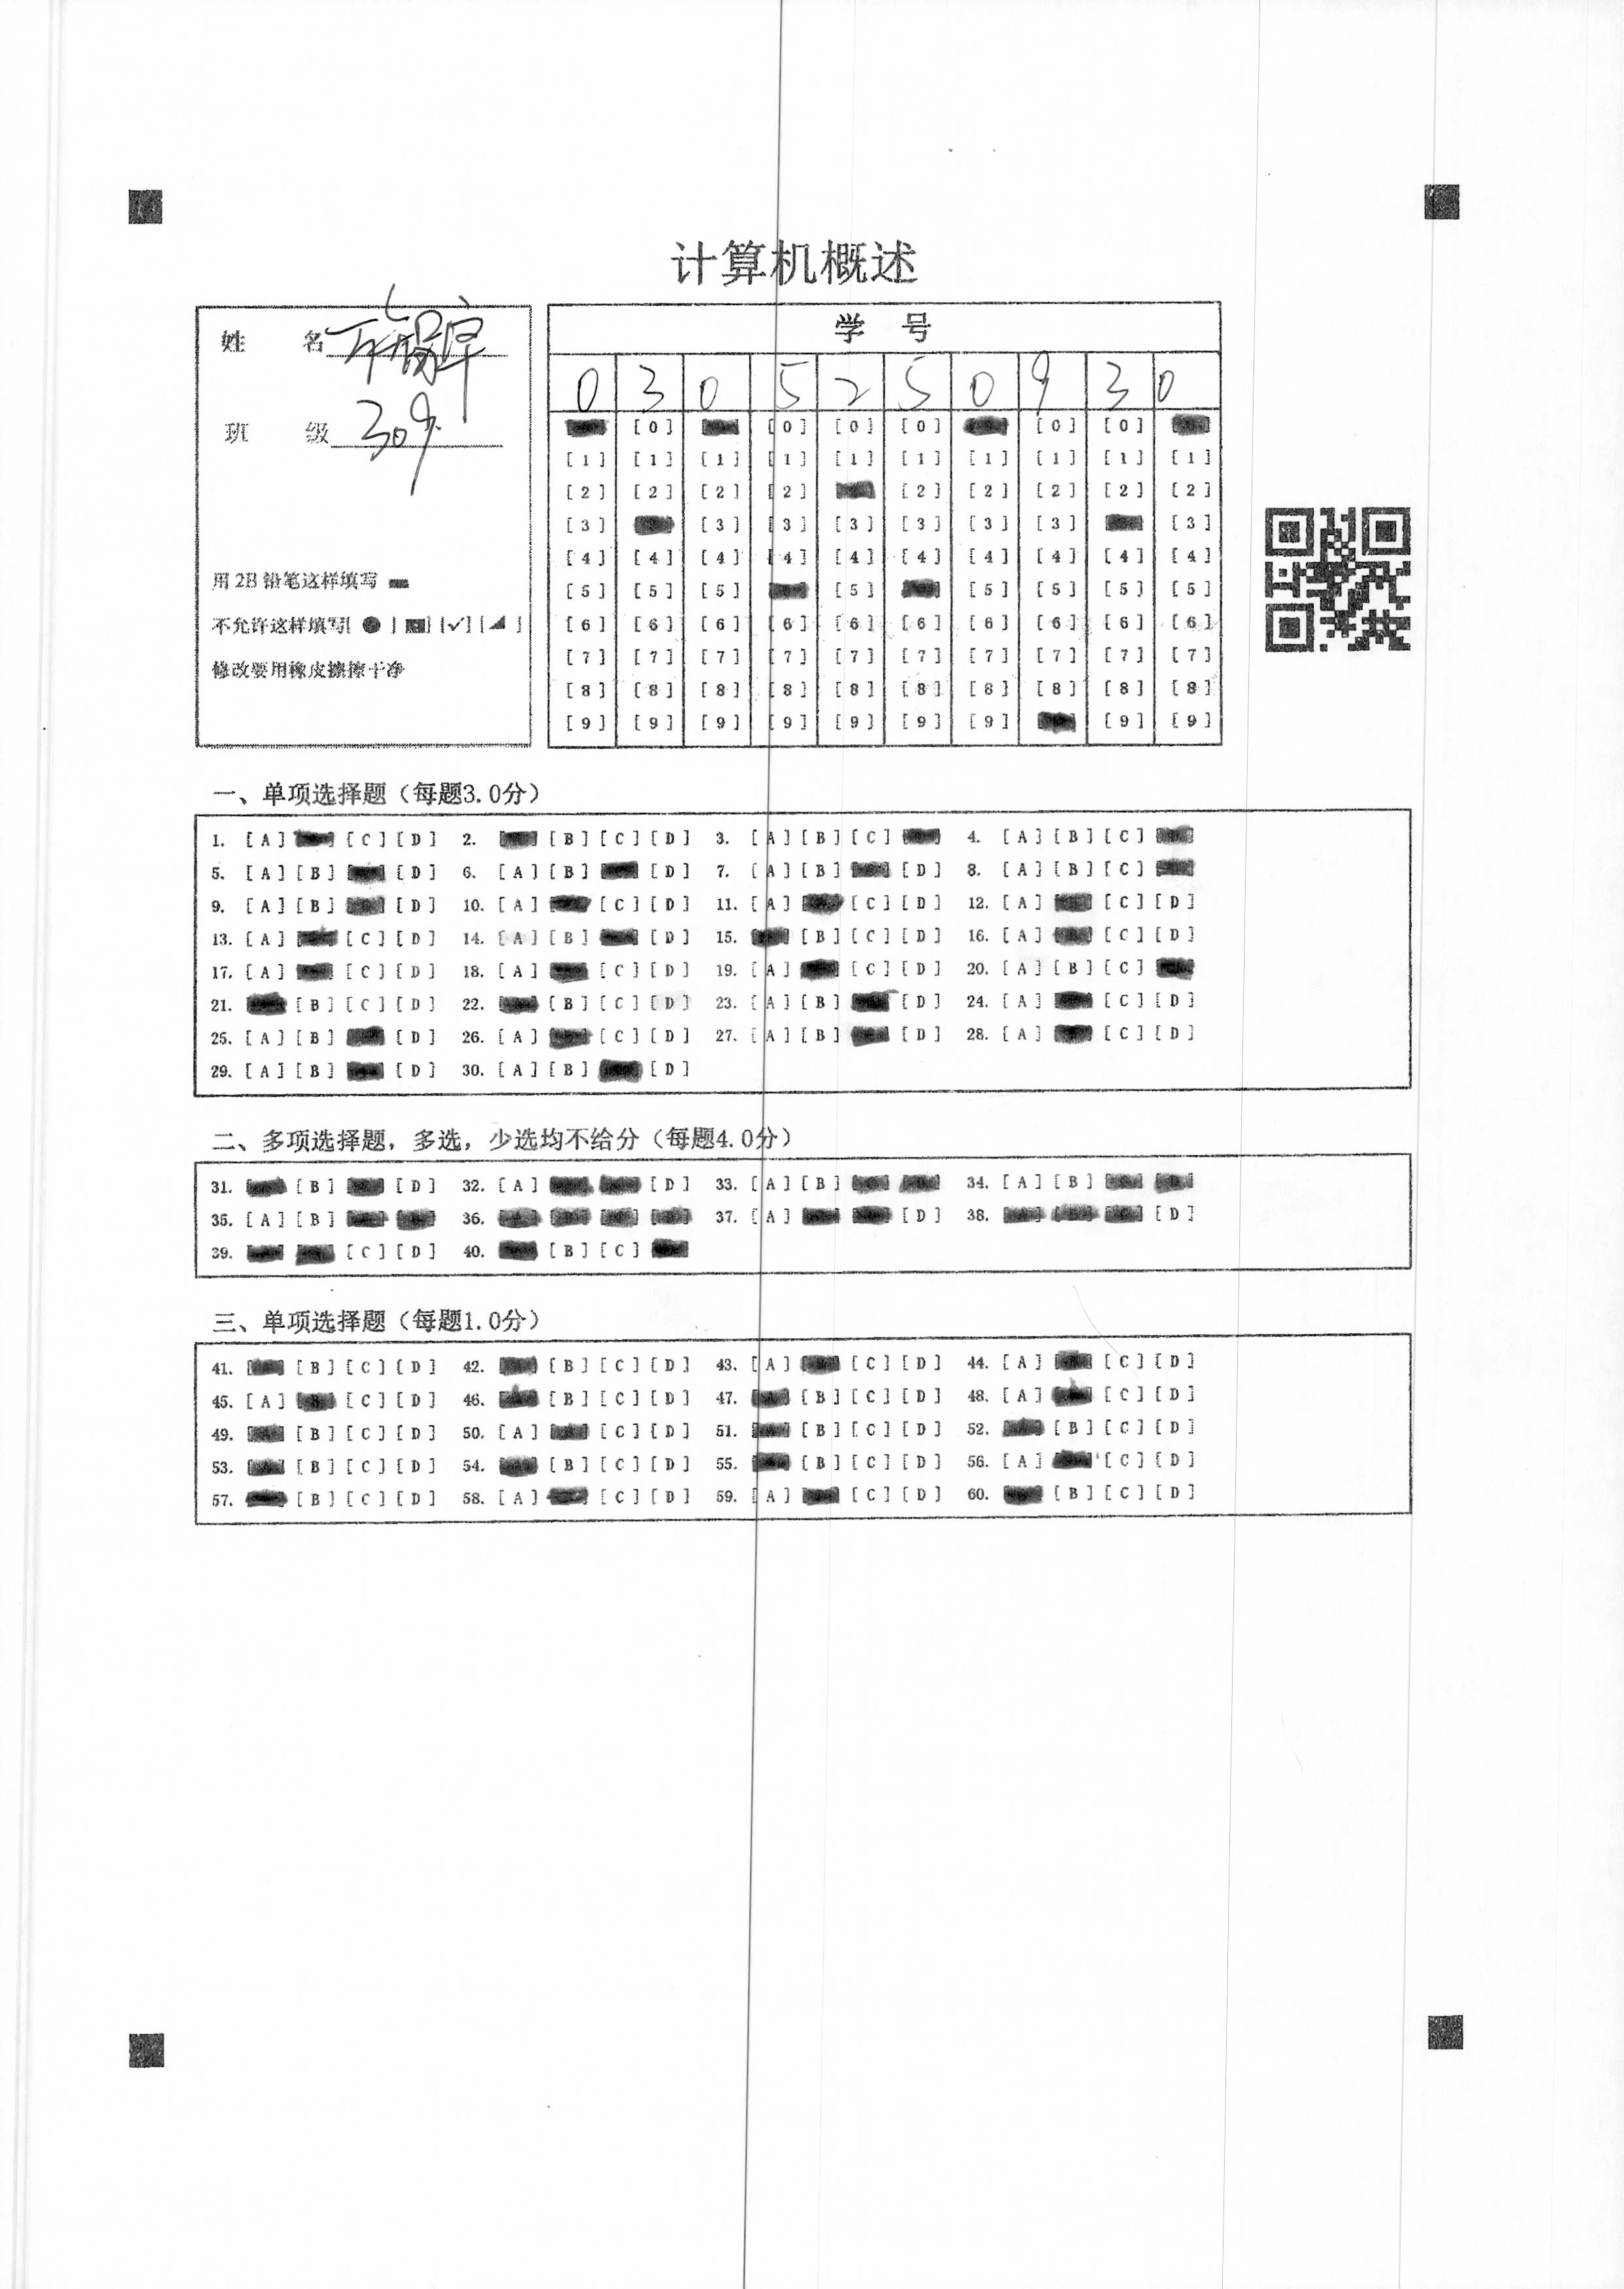 计算机概述
姓 名
班 级 309
用2B铅笔这样填写
不允许这样填写[ ● ] [■] [✓] [◢ ]
修改要用橡皮擦擦干净
学 号
0 3 0 5 2 5 0 9 3 0
[0] [0] [0] [0] [0]
[1] [1] [1] [1] [1] [1] [1] [1] [1] [1]
[2] [2] [2] [2] [2] [2] [2] [2] [2]
[3] [3] [3] [3] [3] [3] [3] [3]
[4] [4] [4] [4] [4] [4] [4] [4] [4] [4]
[5] [5] [5] [5] [5] [5] [5] [5]
[6] [6] [6] [6] [6] [6] [6] [6] [6] [6]
[7] [7] [7] [7] [7] [7] [7] [7] [7] [7]
[8] [8] [8] [8] [8] [8] [8] [8] [8] [8]
[9] [9] [9] [9] [9] [9] [9] [9] [9]
一、单项选择题（每题3.0分）
1. [A] [C] [D] 2. [B] [C] [D] 3. [A] [B] [C] 4. [A] [B] [C]
5. [A] [B] [D] 6. [A] [B] [D] 7. [A] [B] [D] 8. [A] [B] [C]
9. [A] [B] [D] 10. [A] [C] [D] 11. [A] [C] [D] 12. [A] [C] [D]
13. [A] [C] [D] 14. [A] [B] [D] 15. [B] [C] [D] 16. [A] [C] [D]
17. [A] [C] [D] 18. [A] [C] [D] 19. [A] [C] [D] 20. [A] [B] [C]
21. [B] [C] [D] 22. [B] [C] [D] 23. [A] [B] [D] 24. [A] [C] [D]
25. [A] [B] [D] 26. [A] [C] [D] 27. [A] [B] [D] 28. [A] [C] [D]
29. [A] [B] [D] 30. [A] [B] [D]
二、多项选择题，多选，少选均不给分（每题4.0分）
31. [B] [D] 32. [A] [D] 33. [A] [B] 34. [A] [B]
35. [A] [B] 36. 37. [A] [D] 38. [D]
39. [C] [D] 40. [B] [C]
三、单项选择题（每题1.0分）
41. [B] [C] [D] 42. [B] [C] [D] 43. [A] [C] [D] 44. [A] [C] [D]
45. [A] [C] [D] 46. [B] [C] [D] 47. [B] [C] [D] 48. [A] [C] [D]
49. [B] [C] [D] 50. [A] [C] [D] 51. [B] [C] [D] 52. [B] [C] [D]
53. [B] [C] [D] 54. [B] [C] [D] 55. [B] [C] [D] 56. [A] [C] [D]
57. [B] [C] [D] 58. [A] [C] [D] 59. [A] [C] [D] 60. [B] [C] [D]